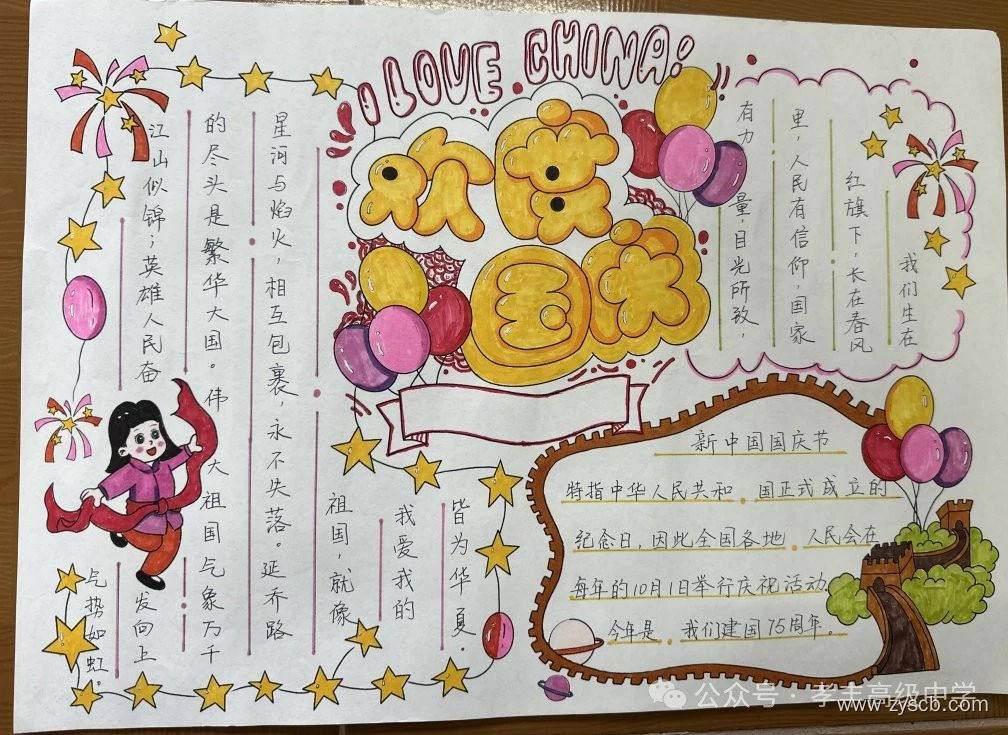 I LOVE CHINA!
欢度
国庆
我们生在
红旗下,长在春风
里,人民有信仰,国家
有力量,目光所致,
皆为华夏.
我爱我的
祖国,就像
星河与焰火,相互包裹,永不失落。延乔路
的尽头是繁华大国。伟大祖国气象万千
江山似锦;英雄人民奋发向上
气势如虹。
新中国国庆节
特指中华人民共和国正式成立的
纪念日,因此全国各地人民会在
每年的10月1日举行庆祝活动.
今年是我们建国75周年。
公众号·孝丰高级中学
www.zyscb.com